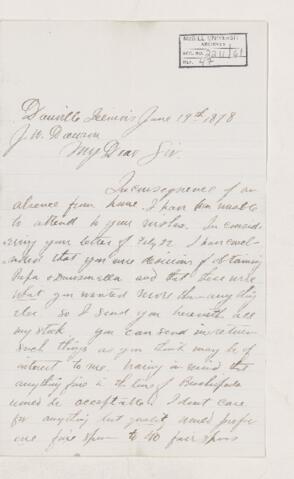 McGILL UNIVERSITY
ARCHIVES
ACC. NO. 2211/61
REF. 47
Danville Illinois June 19th 1878
J. W. Dawson
My Dear Sir.
In consequence of an
absence from home, I have been unable
to attend to your wishes. In consid
ering your letter of I have concl
uded that you were desirous of obtaining
Pupa & and that these were
what you wanted more than anything
else so I send you herewith all
my stock you can send in return
such things as you think may be of
interest to me, having in mind, that
anything fine in the line of
would be acceptable. I dont care
for anything but quality, would prefer
one fine to 40 fair